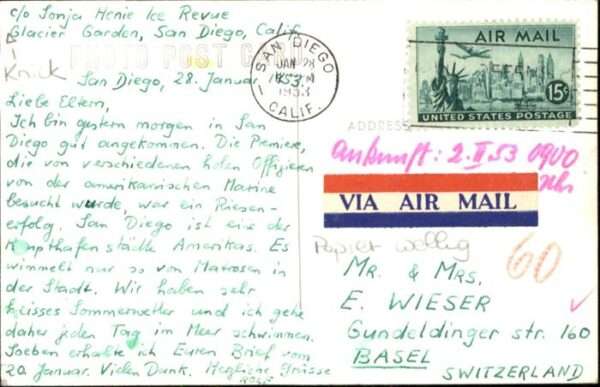 c/o Sonja Henie Ice Revue
Glacier Garden, San Diego, Calif.
PHOTO POST CARD
Knick
San Diego, 28. Januar 1953.
Liebe Eltern,
Ich bin gestern morgen in San
Diego gut angekommen. Die Premiere,
die von verschiedenen hohen Offizieren
von der amerikanischen Marine
besucht wurde, war ein Riesen-
erfolg. San Diego ist eine der
Haupthafenstädte Amerikas. Es
wimmelt nur so von Matrosen in
der Stadt. Wir haben sehr
heisses Sommerwetter und ich gehe
daher jeden Tag im Meer schwimmen.
Soeben erhalte ich Euren Brief vom
20. Januar. Vielen Dank. Herzliche Grüsse
ROLF
SAN DIEGO
JAN 28
PM
1953
CALIF.
AIR MAIL
15¢
UNITED STATES POSTAGE
ADDRESS
Ankunft: 2.II.53 0900
Uhr
VIA AIR MAIL
Papier wellig
60
MR. & MRS.
E. WIESER
Gundeldinger str. 160
BASEL
SWITZERLAND